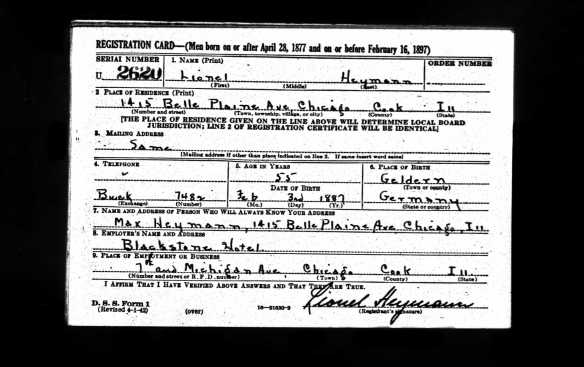 REGISTRATION CARD—(Men born on or after April 28, 1877 and on or before February 16, 1897)
SERIAL NUMBER 1. NAME (Print) ORDER NUMBER
U 2620 Lionel Heymann
(First) (Middle) (Last)
2. PLACE OF RESIDENCE (Print)
1415 Belle Plaine Ave Chicago Cook Ill
(Number and street) (Town, township, village, or city) (County) (State)
[THE PLACE OF RESIDENCE GIVEN ON THE LINE ABOVE WILL DETERMINE LOCAL BOARD
JURISDICTION; LINE 2 OF REGISTRATION CERTIFICATE WILL BE IDENTICAL]
3. MAILING ADDRESS
Same
[Mailing address if other than place indicated on line 2. If same insert word same]
4. TELEPHONE 5. AGE IN YEARS 6. PLACE OF BIRTH
55 Geldern
DATE OF BIRTH (Town or county)
7482 Feb 3rd 1887 Germany
(Exchange) (Number) (Mo.) (Day) (Yr.) (State or country)
7. NAME AND ADDRESS OF PERSON WHO WILL ALWAYS KNOW YOUR ADDRESS
Max Heymann, 1415 Belle Plaine Ave Chicago, Ill
8. EMPLOYER'S NAME AND ADDRESS
Blackstone Hotel
9. PLACE OF EMPLOYMENT OR BUSINESS
7th and Michigan Ave Chicago Cook Ill.
(Number and street or R. F. D. number) (Town) (County) (State)
I AFFIRM THAT I HAVE VERIFIED ABOVE ANSWERS AND THAT THEY ARE TRUE.
D. S. S. Form 1
(Revised 4-1-42) (over) 16—21630-2 Lionel Heymann
(Registrant's signature)